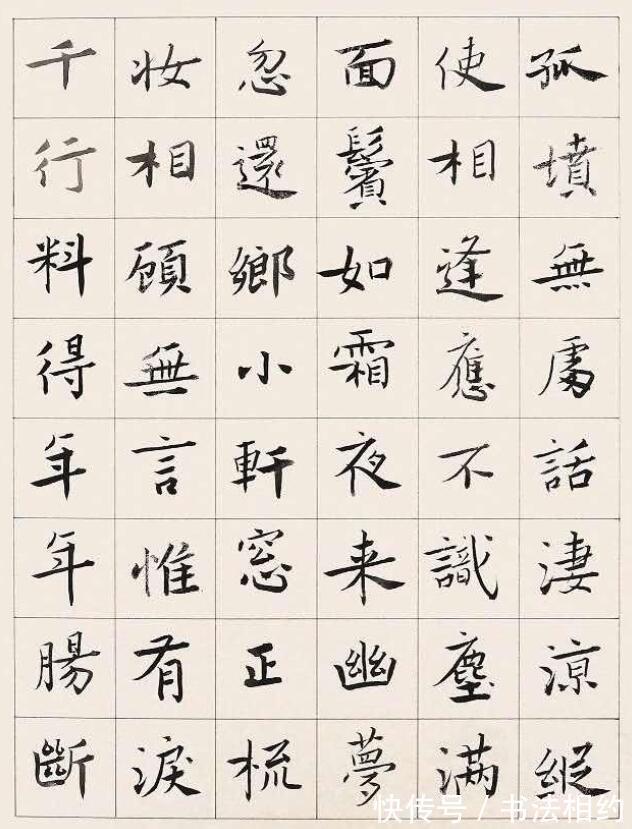 孤墳無處話淒涼縱
使相逢應不識塵滿
面鬢如霜夜来幽夢
忽還鄉小軒窓正梳
妝相顧無言惟有淚
千行料得年年腸斷
快传号 / 书法相约